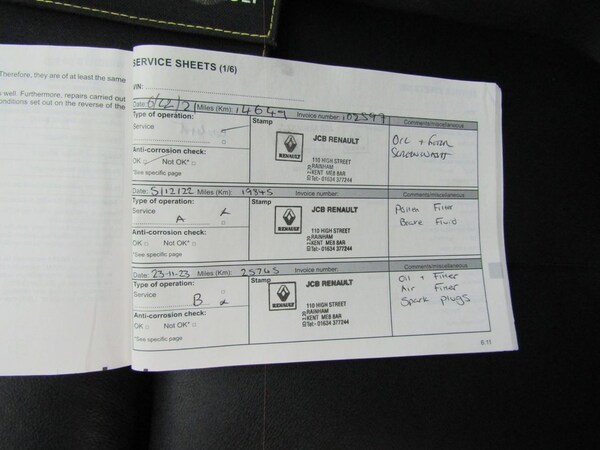 Therefore, they are of at least the same
well. Furthermore, repairs carried out
conditions set out on the reverse of the
SERVICE SHEETS (1/6)
VIN:
Date: 6/12/21 Miles (Km): 14647 Invoice number: 102597
Type of operation: Stamp Comments/miscellaneous
Service
RENAULT
JCB RENAULT
110 HIGH STREET
RAINHAM
KENT ME8 8AR
Tel:- 01634 377244
Oil + Filter
Screenwash
Anti-corrosion check:
OK Not OK*
*See specific page
Date: 5/12/22 Miles (Km): 19845 Invoice number:
Type of operation: Stamp Comments/miscellaneous
Service
A
RENAULT
JCB RENAULT
110 HIGH STREET
RAINHAM
KENT ME8 8AR
Tel:- 01634 377244
Pollen Filter
Brake Fluid
Anti-corrosion check:
OK Not OK*
*See specific page
Date: 23-11-23 Miles (Km): 25745 Invoice number:
Type of operation: Stamp Comments/miscellaneous
Service
B
RENAULT
JCB RENAULT
110 HIGH STREET
RAINHAM
KENT ME8 8AR
Tel:- 01634 377244
Oil + Filter
Air Filter
Spark Plugs
Anti-corrosion check:
OK Not OK*
*See specific page
6.11